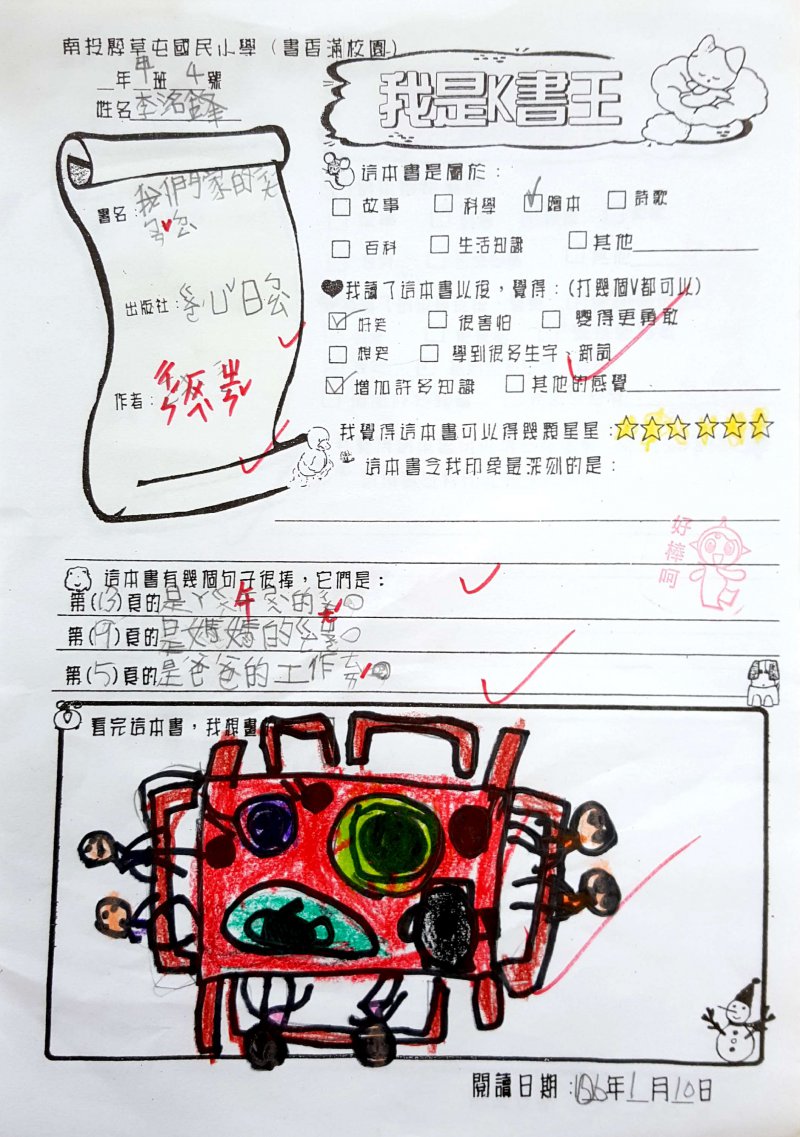 南投縣草屯國民小學（書香滿校園）
_年甲班 4 號
姓名
我是K書王
書名：我們家的
出版社：
作者：
這本書是屬於：
□ 故事 □ 科學 ☑ 繪本 □ 詩歌
□ 百科 □ 生活知識 □ 其他
我讀了這本書以後，覺得：(打幾個V都可以)
☑ 好笑 □ 很害怕 □ 變得更勇敢
□ 想哭 □ 學到很多生字、新詞
☑ 增加許多知識 □ 其他的感覺
我覺得這本書可以得幾顆星星：☆☆☆☆☆☆
這本書令我印象最深刻的是：
好棒呵
這本書有幾個句子很棒，它們是：
第(13)頁的是
第(19)頁的是媽媽的
第(5)頁的是爸爸的工作
看完這本書，我想畫
閱讀日期：106年1月10日